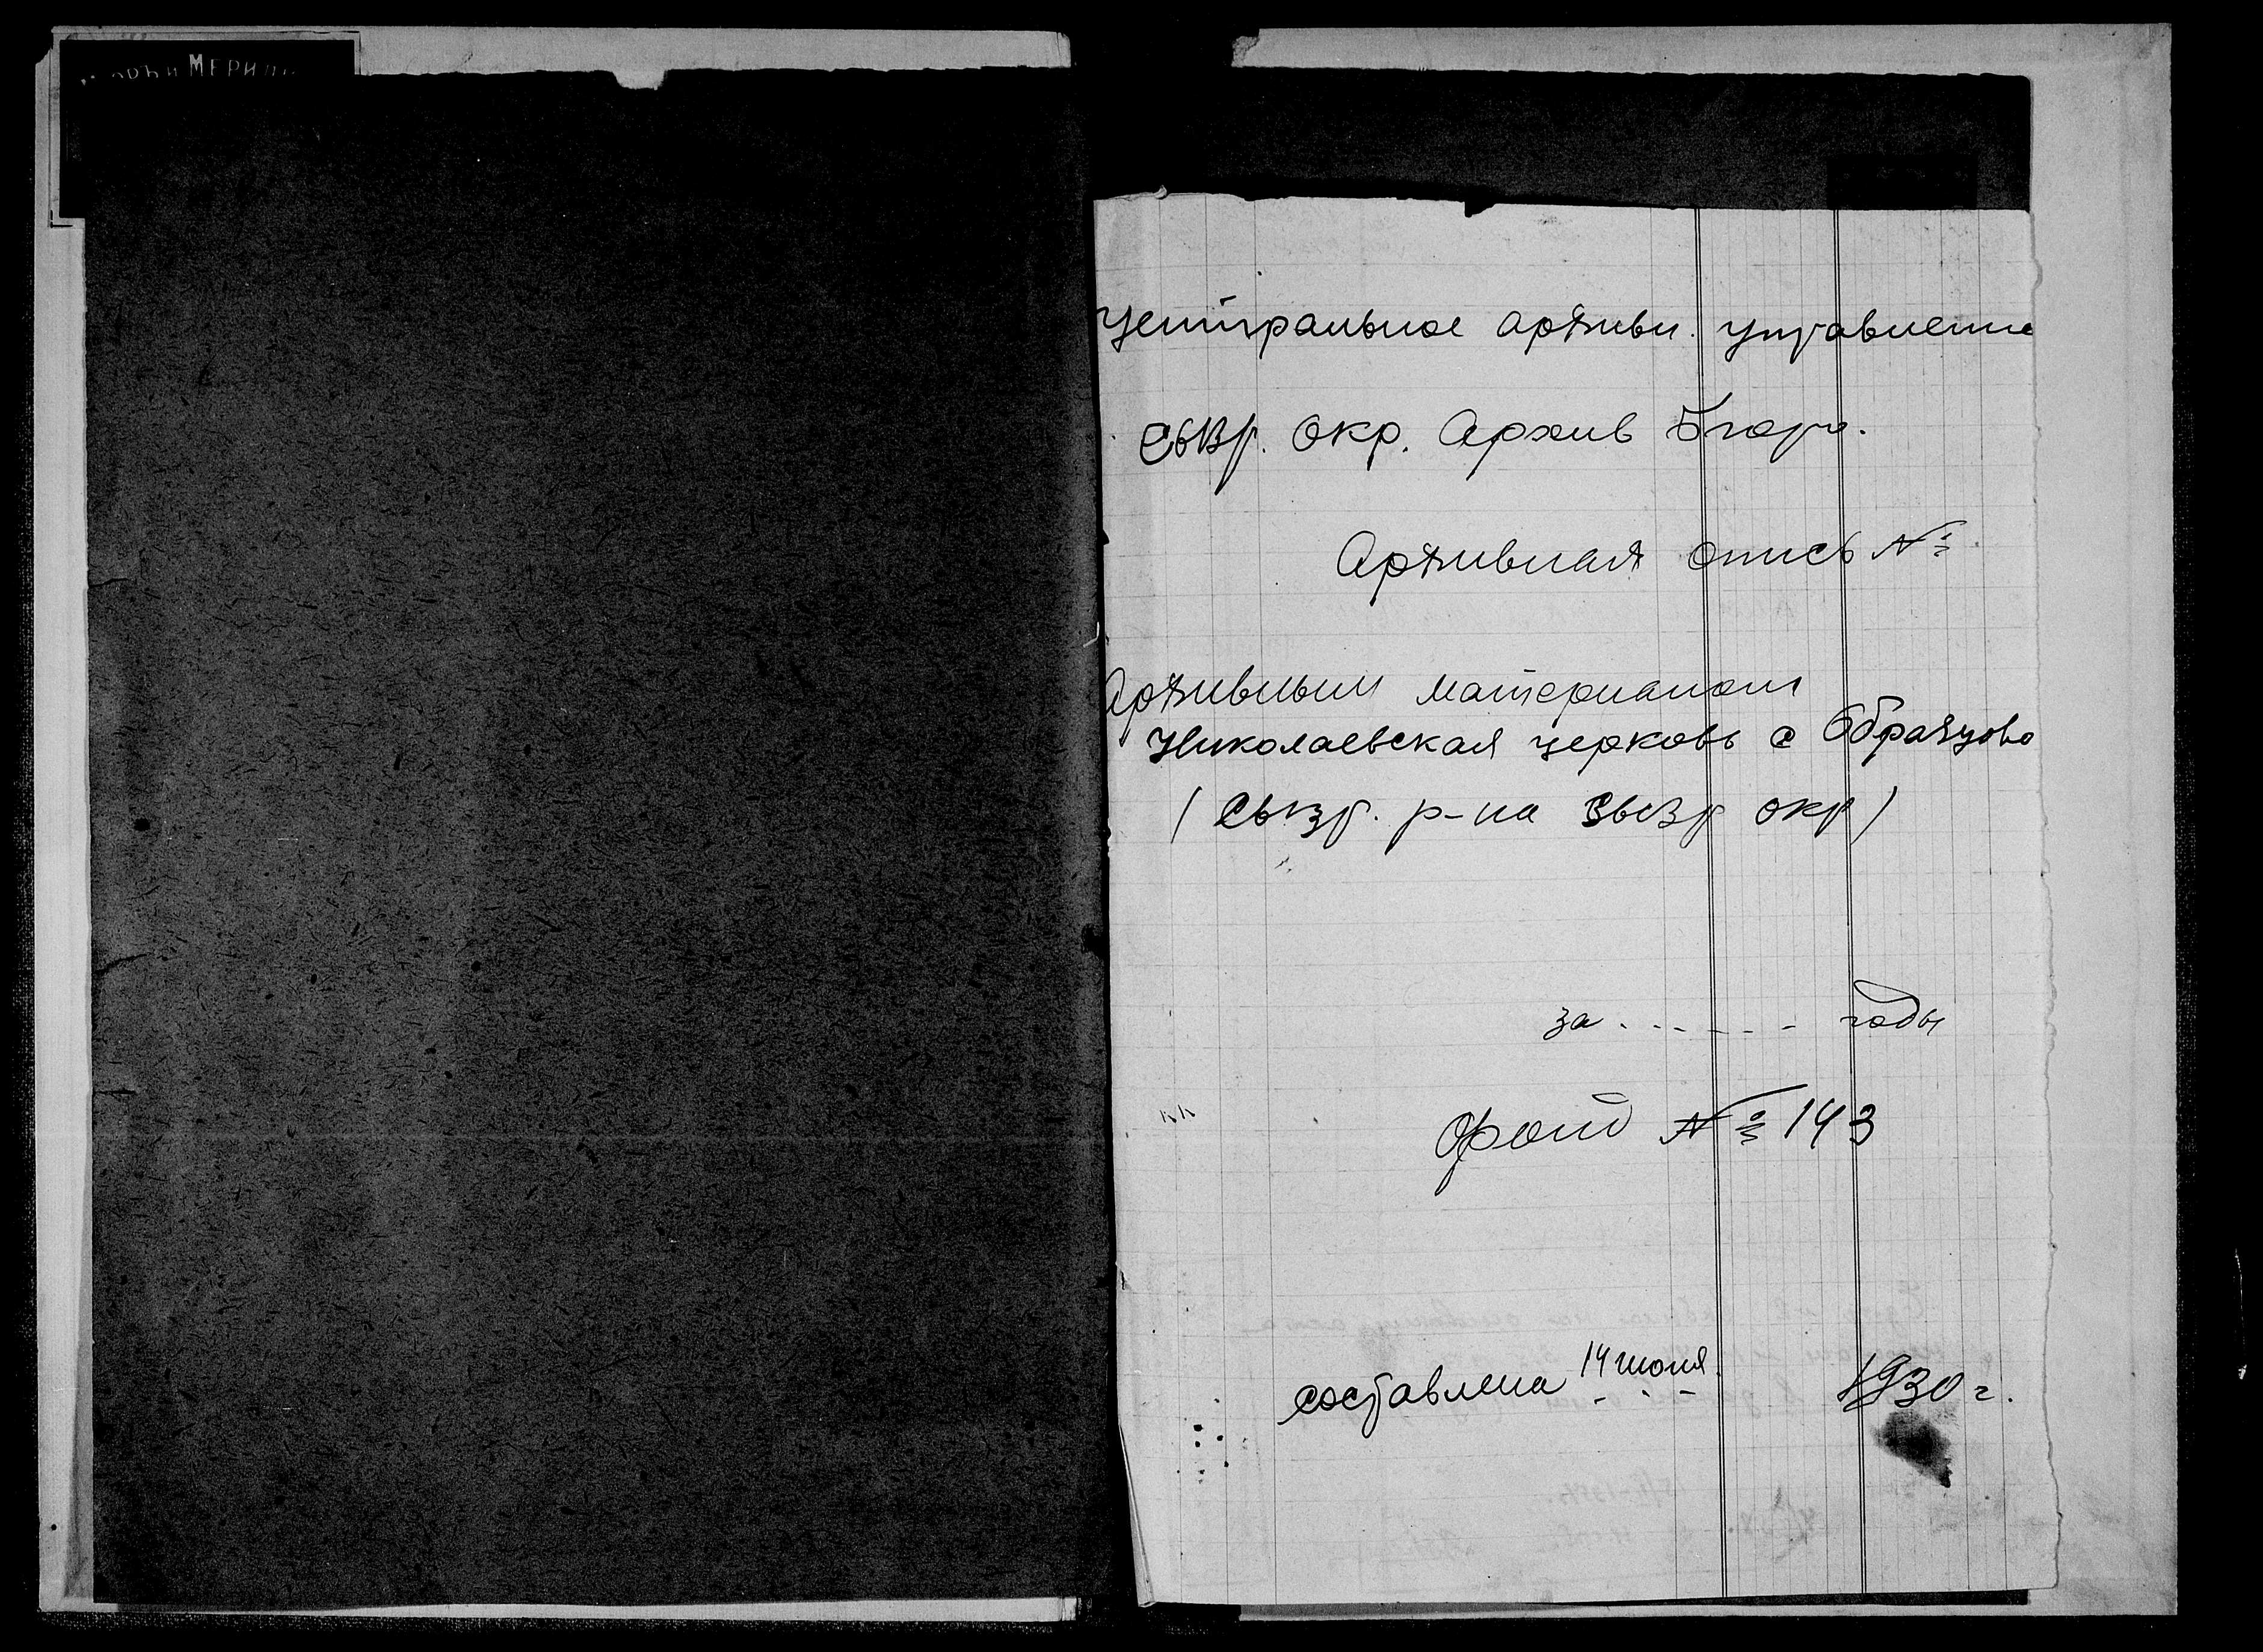 Центральное архивн. управление
Сызр. окр. Архив Бюро.
Архивная опись №
Архивным материалом
Николаевская церковь с Образцово
(Сызр. р-на Сызр окр)
за . . . . . . годы
Фонд № 143
составлена 14 июня 1930 г.